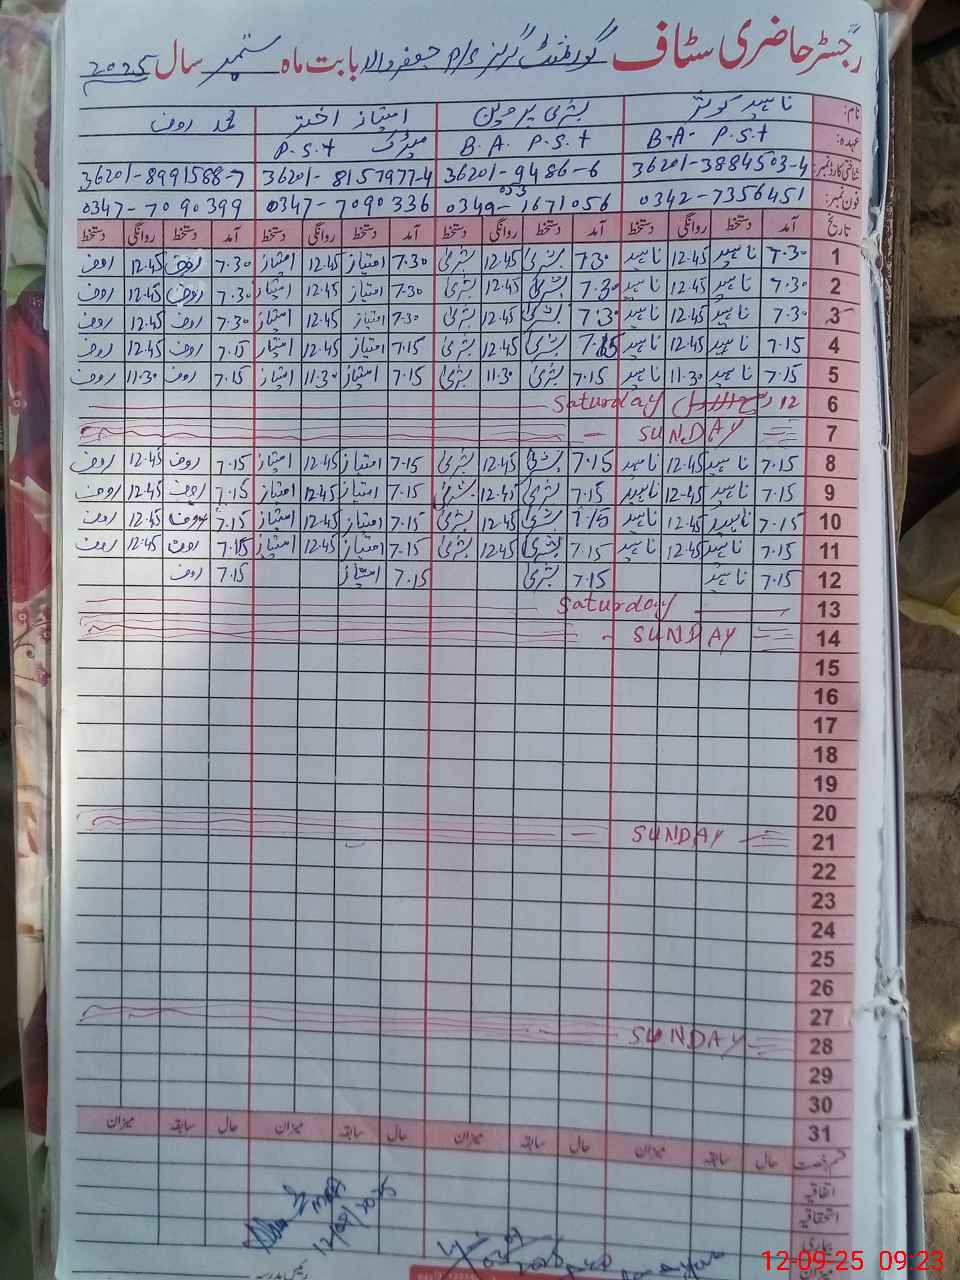 رجسٹر حاضری سٹاف گورنمنٹ گرلز P/S جعفر والا بابت ماہ ستمبر سال 2025
نام: ناہید کوثر بشریٰ پروین امتیاز اختر محمد روف
عہدہ: B.A. P.S.T B.A. P.S.T میٹرک P.S.T
شناختی کارڈ نمبر: 36201-3884503-4 36201-9486-6 36201-8157977-4 36201-8991588-7
053
فون نمبر: 0342-7356451 0349-1671056 0347-7090336 0347-7090399
تاریخ آمد دستخط روانگی دستخط آمد دستخط روانگی دستخط آمد دستخط روانگی دستخط آمد دستخط روانگی دستخط
1 7.30 ناہید 12.45 ناہید 7.30 بشریٰ 12.45 بشریٰ 7.30 امتیاز 12.45 امتیاز 7.30 روف 12.45 روف
2 7.30 ناہید 12.45 ناہید 7.30 بشریٰ 12.45 بشریٰ 7.30 امتیاز 12.45 امتیاز 7.30 روف 12.45 روف
3 7.30 ناہید 12.45 ناہید 7.30 بشریٰ 12.45 بشریٰ 7.30 امتیاز 12.45 امتیاز 7.30 روف 12.45 روف
4 7.15 ناہید 12.45 ناہید 7.15 بشریٰ 12.45 بشریٰ 7.15 امتیاز 12.45 امتیاز 7.15 روف 12.45 روف
5 7.15 ناہید 11.30 ناہید 7.15 بشریٰ 11.30 بشریٰ 7.15 امتیاز 11.30 امتیاز 7.15 روف 11.30 روف
6 12 ربیع الاول Saturday
7 SUNDAY
8 7.15 ناہید 12.45 ناہید 7.15 بشریٰ 12.45 بشریٰ 7.15 امتیاز 12.45 امتیاز 7.15 روف 12.45 روف
9 7.15 ناہید 12.45 ناہید 7.15 بشریٰ 12.45 بشریٰ 7.15 امتیاز 12.45 امتیاز 7.15 روف 12.45 روف
10 7.15 ناہید 12.45 ناہید 7.15 بشریٰ 12.45 بشریٰ 7.15 امتیاز 12.45 امتیاز 7.15 روف 12.45 روف
11 7.15 ناہید 12.45 ناہید 7.15 بشریٰ 12.45 بشریٰ 7.15 امتیاز 12.45 امتیاز 7.15 روف 12.45 روف
12 7.15 ناہید 7.15 بشریٰ 7.15 امتیاز 7.15 روف
13 Saturday
14 SUNDAY
15
16
17
18
19
20
21 SUNDAY
22
23
24
25
26
27
28 SUNDAY
29
30
31
قسم رخصت حال سابقہ میزان حال سابقہ میزان حال سابقہ میزان حال سابقہ میزان
اتفاقیہ
استحقاقیہ
بیماری
میزان
12/09/2025
رئیس مدرسہ
12-09-25 09:23